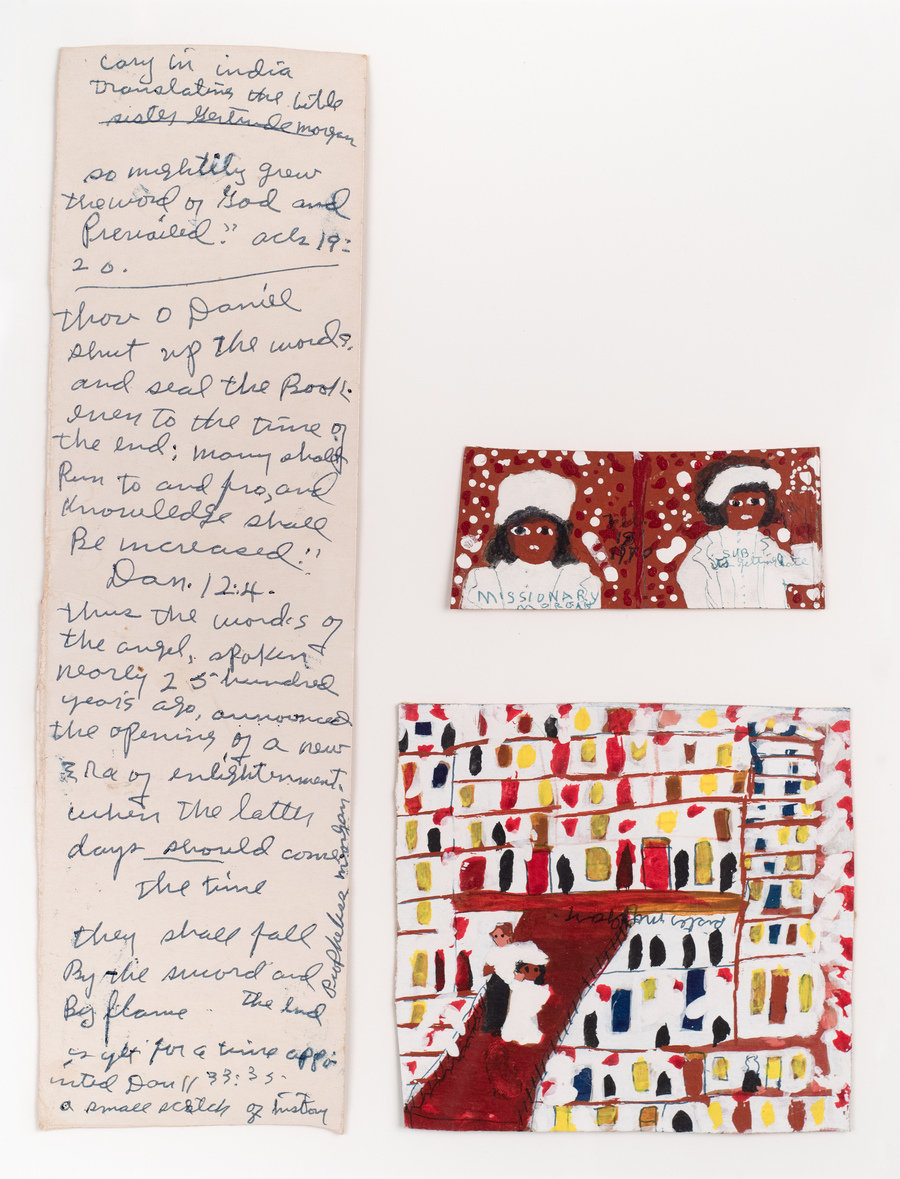 cary in india
translating the bible
sister Gertrude morgan
so mightily grew
the word of God and
Prevailed." acts 19:
20.
thou O Daniel
shut up the words,
and seal the Book.
even to the time of
the end; many shall
Run to and fro, and
Knowledge shall
Be increased."
Dan. 12:4.
thus the words of
the angel, spoken
nearly 25 hundred
years ago, announced
the opening of a new
Era of enlightenment
when the latter
days should come
the time
they shall fall
By the sword and
By flame the end
is yet for a time appo
inted Dan 11 33:35.
a small scetch of history
Prophetess morgan.
MISSIONARY
MORGAN
1970
SUB
its getting late
sister morgan